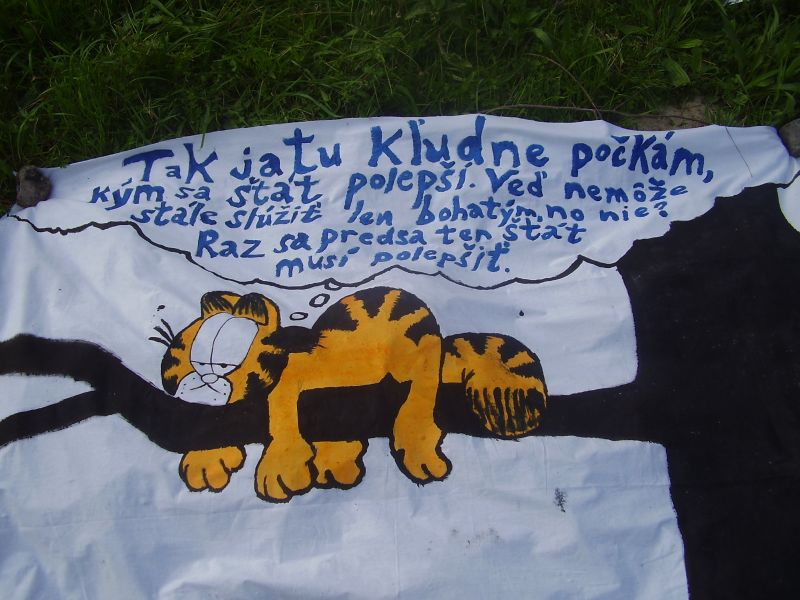 Tak ja tu kľudne počkám,
kým sa štát polepší. Veď nemôže
stále slúžiť len bohatým, no nie?
Raz sa predsa ten štát
musí polepšiť.